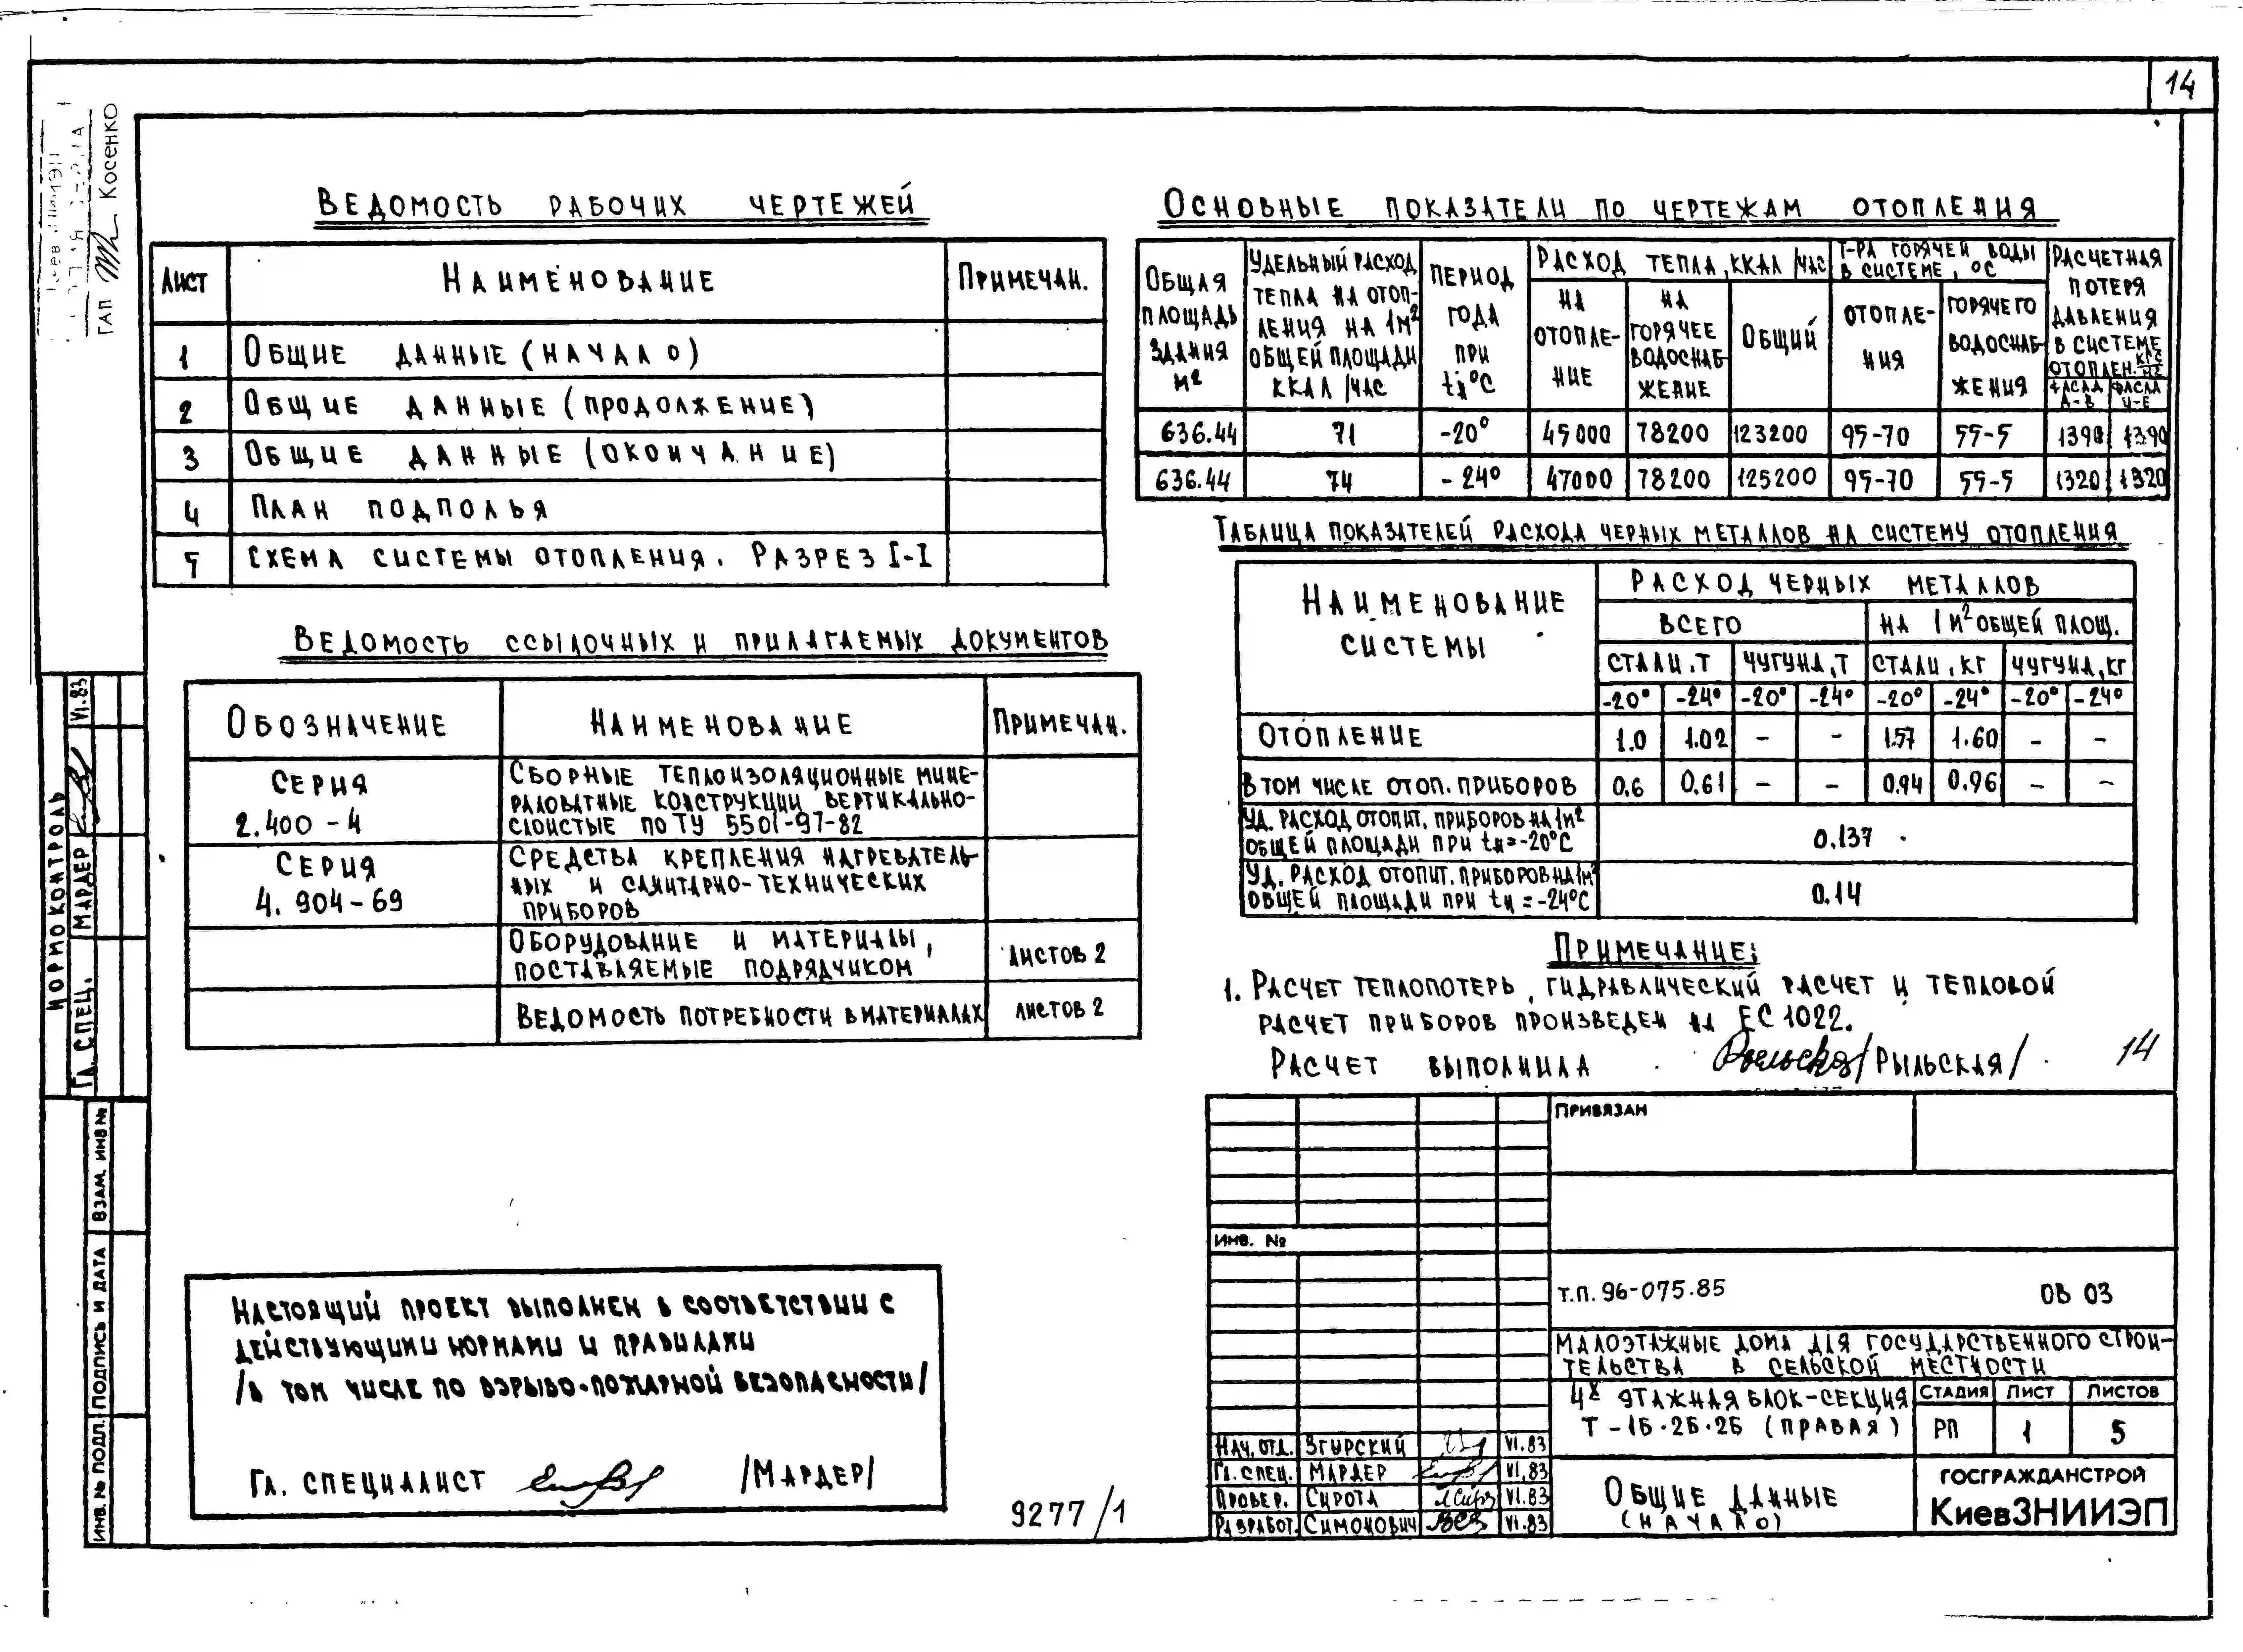 14
ГАП Косенко
Ведомость рабочих чертежей
Лист Наименование Примечан.
1 Общие данные (начало)
2 Общие данные (продолжение)
3 Общие данные (окончание)
4 План подполья
5 Схема системы отопления. Разрез I-I
Ведомость ссылочных и прилагаемых документов
Обозначение Наименование Примечан.
Серия 2.400-4
Сборные теплоизоляционные мине-
раловатные конструкции вертикально-
слоистые по ТУ 5501-97-82
Серия 4.904-69
Средства крепления нагреватель-
ных и санитарно-технических
приборов
Оборудование и материалы,
поставляемые подрядчиком
листов 2
Ведомость потребности в материалах листов 2
Основные показатели по чертежам отопления
Общая площадь здания м²
Удельный расход тепла на отоп-
ления на 1м² общей площади ккал/час
Период года при °C
Расход тепла, ккал/час
на отопле-
ние
на горячее водоснаб-
жение
общий
Т-ра горячей воды в системе, °C
отопле-
ния
горячего водоснаб-
жения
Расчетная потеря давления в системе отоплен. кгс/м²
фасад А-В
фасад
636.44 71 -20° 45000 78200 123200 95-70 55-5 1390 1390
636.44 74 -24° 47000 78200 125200 95-70 55-5 1320 1320
Таблица показателей расхода черных металлов на систему отопления
Наименование системы
Расход черных металлов
всего на 1м² общей площ.
стали, т чугуна, т стали, кг чугуна, кг
-20° -24° -20° -24° -20° -24° -20° -24°
Отопление 1.0 1.02 - - 1.57 1.60 - -
в том числе отоп. приборов 0.6 0.61 - - 0.94 0.96 - -
Уд. расход отопит. приборов на 1м²
общей площади при tн=-20°C
0.137
Уд. расход отопит. приборов на 1м²
общей площади при tн=-24°C
0.14
Примечание:
1. Расчет теплопотерь, гидравлический расчет и тепловой
расчет приборов произведен на ЕС 1022.
Расчет выполнила /Рыльская/
14
Нормоконтроль
Гл. спец. Мардер VI.83
Взам. инв №
Подпись и дата
Инв. № подл.
Настоящий проект выполнен в соответствии с
действующими нормами и правилами
/в том числе по взрыво-пожарной безопасности/
Гл. специалист /Мардер/
9277/1
Привязан
Инв. №
т.п. 96-075.85 ОВ 03
Малоэтажные дома для государственного строи-
тельства в сельской местности
4х этажная блок-секция
Т-1Б.2Б.2Б (правая)
Стадия Лист Листов
РП 1 5
Нач. отд. Згурский VI.83
Гл. спец. Мардер VI.83
Провер. Сирота VI.83
Разработ. Симонович VI.83
Общие данные
(начало)
ГОСГРАЖДАНСТРОЙ
КиевЗНИИЭП